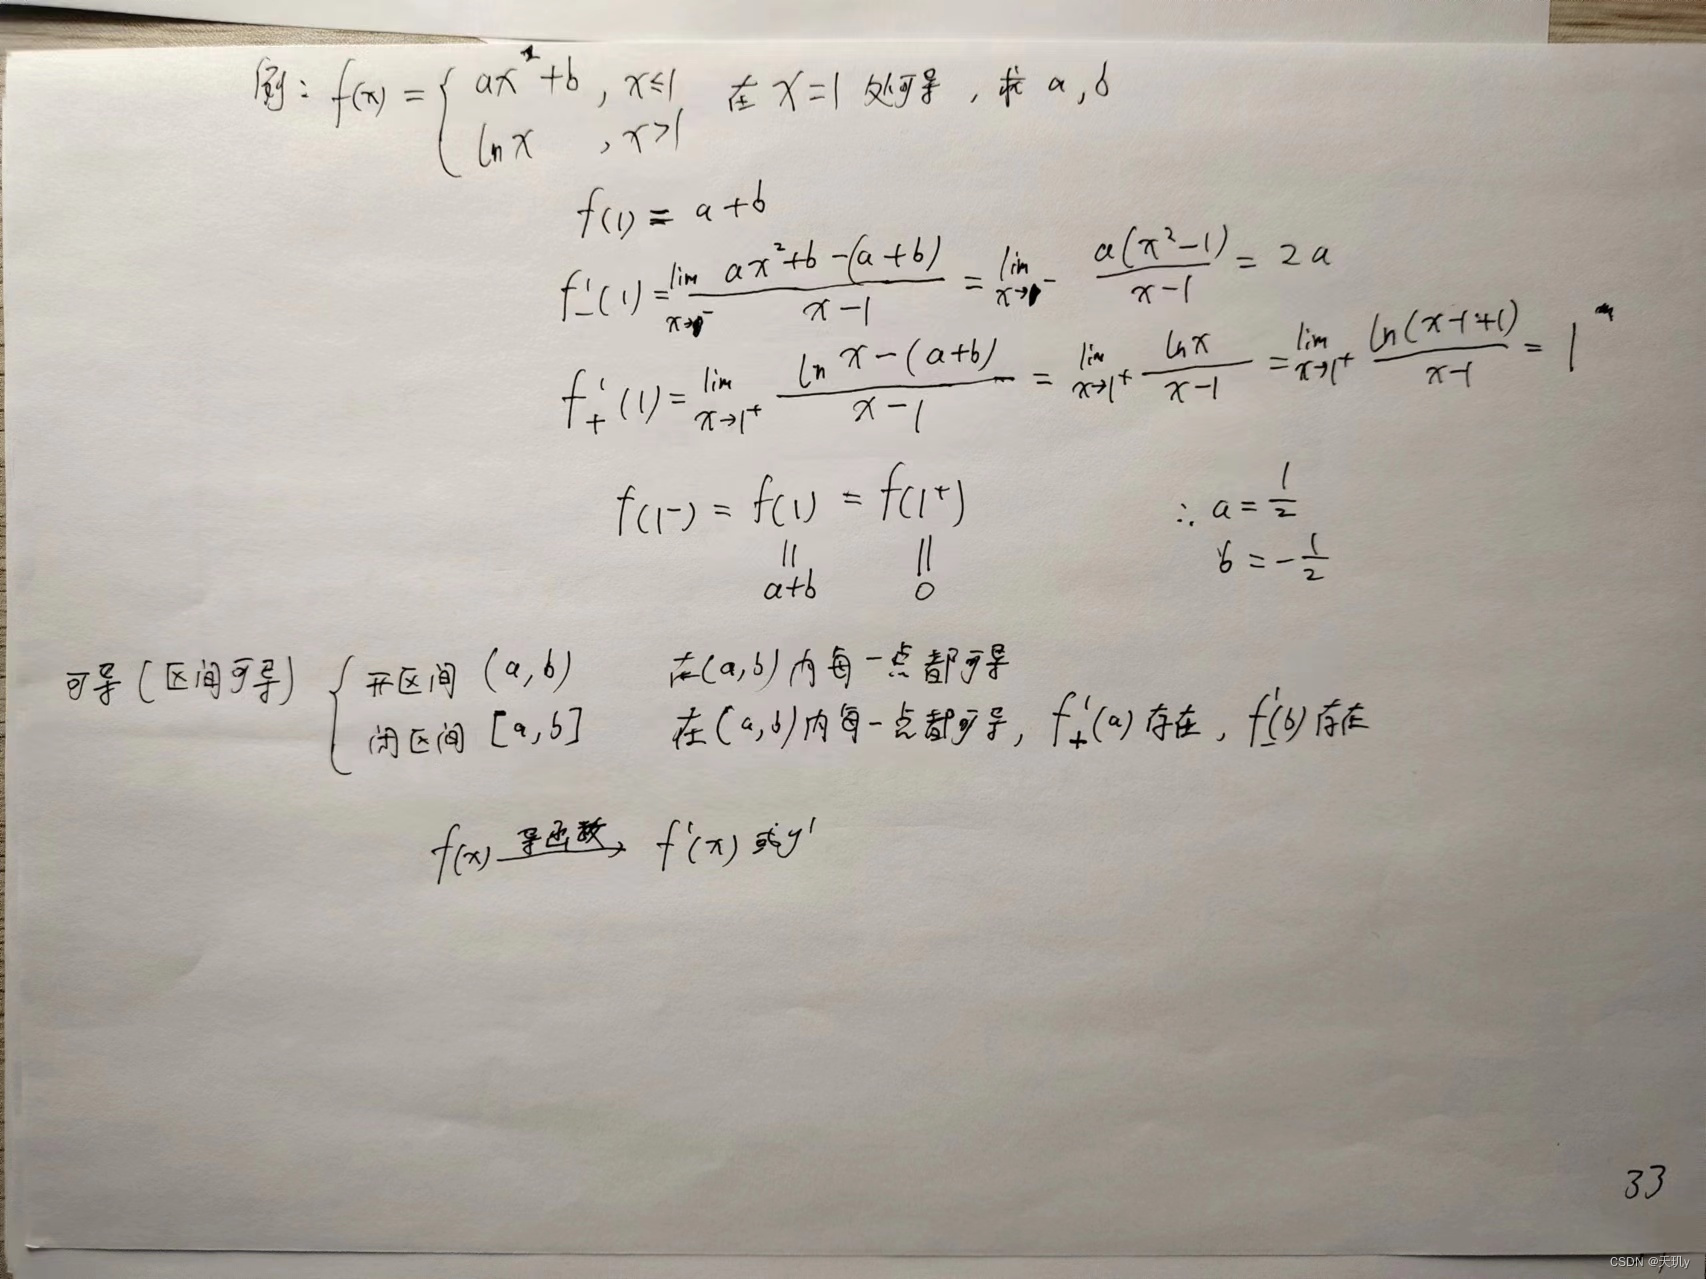 例: f(x) = { ax²+b , x≤1 在 x=1 处可导 , 求 a , b
lnx , x>1
f(1) = a+b
f₋'(1) = lim x→1⁻ (ax²+b-(a+b))/(x-1) = lim x→1⁻ a(x²-1)/(x-1) = 2a
f₊'(1) = lim x→1⁺ (ln x-(a+b))/(x-1) = lim x→1⁺ lnx/(x-1) = lim x→1⁺ ln(x-1+1)/(x-1) = 1
f(1⁻) = f(1) = f(1⁺) ∴ a = 1/2
|| ||
a+b 0 b = -1/2
可导(区间可导) { 开区间 (a,b) 在(a,b)内每一点都可导
闭区间 [a,b] 在(a,b)内每一点都可导, f₊'(a) 存在, f₋'(b) 存在
f(x) 导函数→ f'(x) 或y'
33
CSDN @天玑y